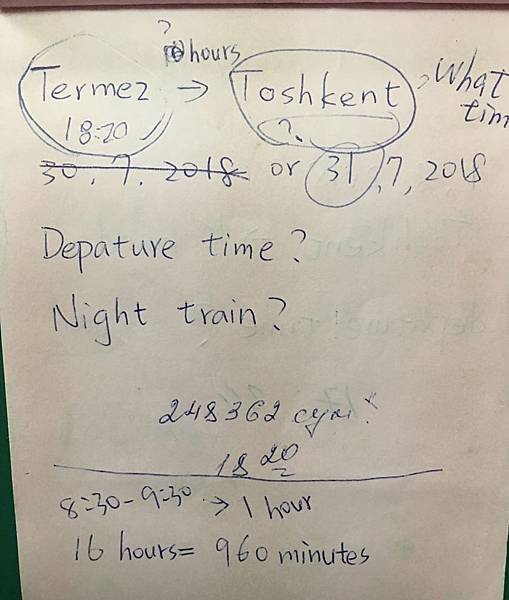 ?
hours
Termez → Toshkent
What
tim
18:20
?
30.7.2018 or 31.7,2018
Depature time?
Night train?
248362
18 20
8:30-9:30 → 1 hour
16 hours= 960 minutes